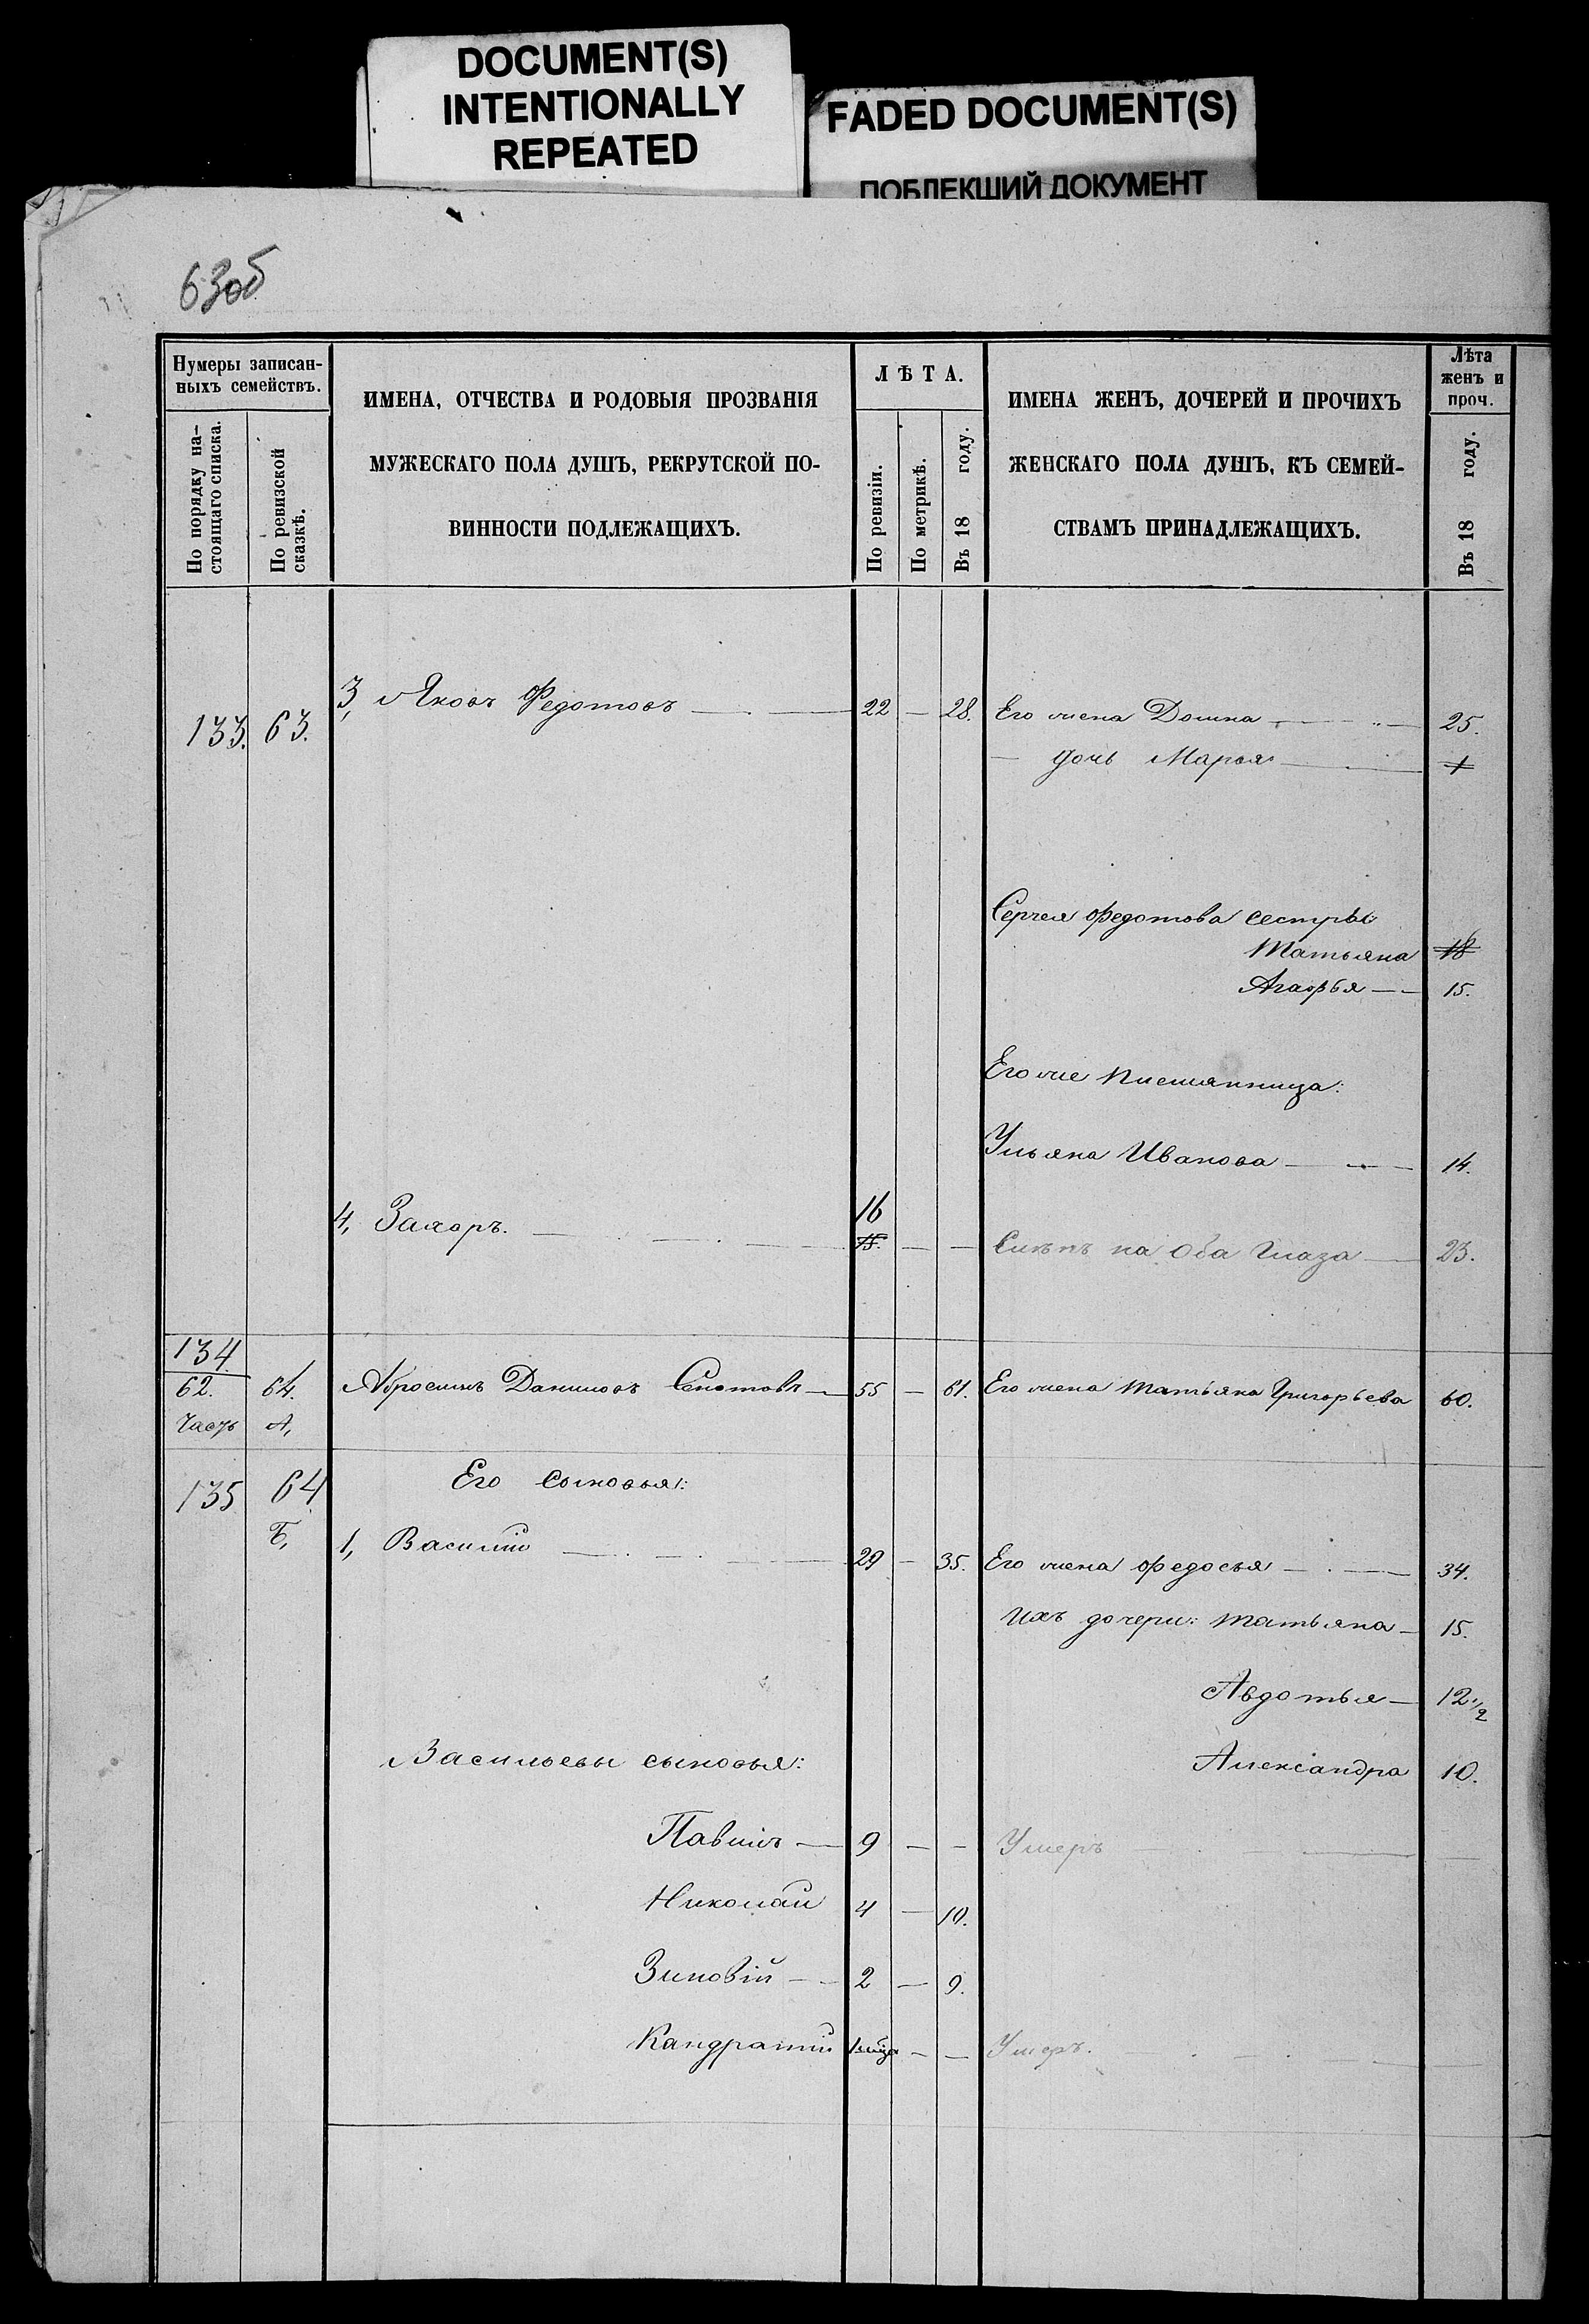 DOCUMENT(S)
INTENTIONALLY
REPEATED
FADED DOCUMENT(S)
ПОБЛЕКШИЙ ДОКУМЕНТ
63об
Нумеры записан-
ныхъ семействъ.
По порядку на-
стоящаго списка.
По ревизской
сказкѣ.
ИМЕНА, ОТЧЕСТВА И РОДОВЫЯ ПРОЗВАНІЯ
МУЖЕСКАГО ПОЛА ДУШЪ, РЕКРУТСКОЙ ПО-
ВИННОСТИ ПОДЛЕЖАЩИХЪ.
ЛѢТА.
По ревизіи.
По метрикѣ.
Въ 18 году.
ИМЕНА ЖЕНЪ, ДОЧЕРЕЙ И ПРОЧИХЪ
ЖЕНСКАГО ПОЛА ДУШЪ, КЪ СЕМЕЙ-
СТВАМЪ ПРИНАДЛЕЖАЩИХЪ.
Лѣта
женъ и
проч.
Въ 18 году.
133. 63. 3, Яковъ Федотовъ — 22 — 28. Его жена Домна — 25.
— дочь Марья — 1
Сергея Федотова сестры:
Татьяна 18
Агафья — 15.
Его же племянница:
Ульяна Иванова — 14.
4, Захоръ. — 16
15. — — Слѣпъ на оба глаза — 23.
134
62. 64. Абросимъ Даниловъ — 55 — 61. Его жена Татьяна Григорьева 60.
Часть А,
135 64 Его сыновья:
Б, 1, Василій — 29 — 35. Его жена Федосья — 34.
Ихъ дочери: Татьяна — 15.
Авдотья — 12 1/2
Васильевы сыновья: Александра 10.
Павилъ — 9 — — Умеръ —
Николай 4 — 10.
Зиновій — 2 — 9.
Кандратій — — Умеръ. —